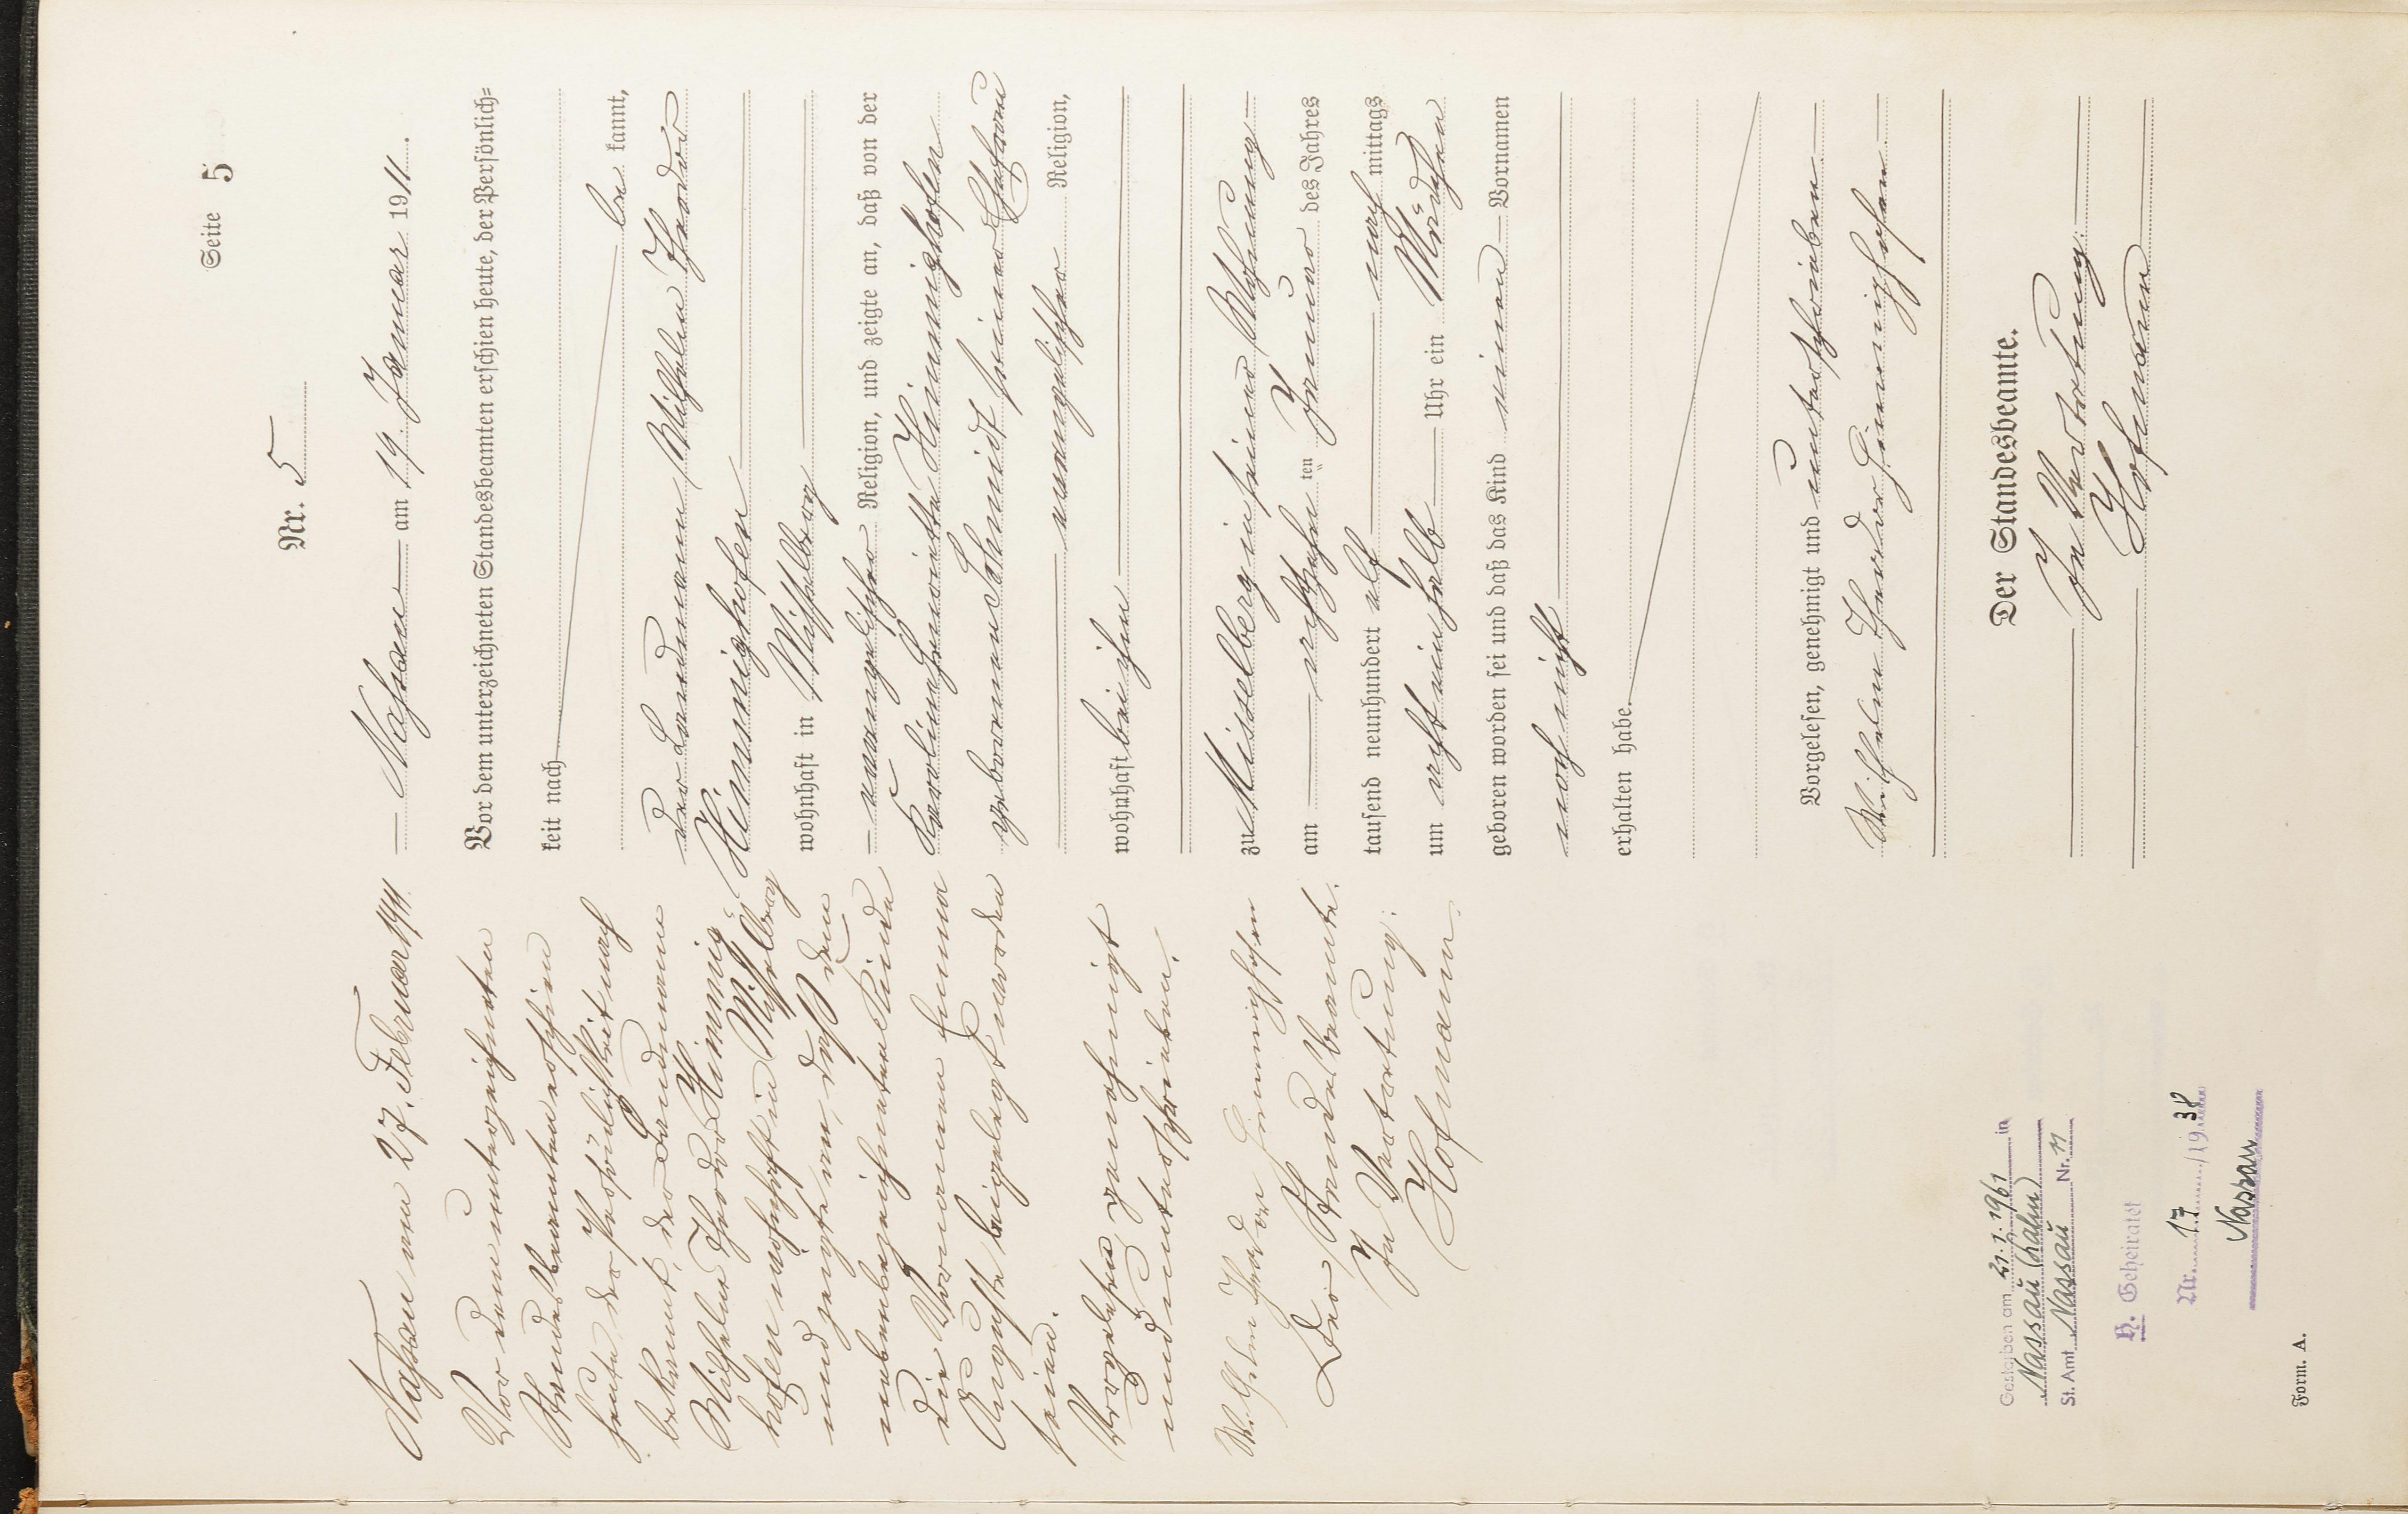 Seite 5
Nr. 5
Nassau am 19. Januar 1911.
Vor dem unterzeichneten Standesbeamten erschien heute, der Persönlich-
keit nach
be kannt,
der Landmann Wilhelm Theodor
Himmighofen
wohnhaft in Misselberg
evangelischer Religion, und zeigte an, daß von der
Karoline Henriette Himmighofen
geborenen Schmidt seiner Ehefrau
evangelischer Religion,
wohnhaft bei ihm
zu Misselberg in seiner Wohnung
am achtzehn ten Januar des Jahres
tausend neunhundert elf nach mittags
um acht einhalb Uhr ein Mädchen
geboren worden sei und daß das Kind einen Vornamen
noch nicht
erhalten habe.
Vorgelesen, genehmigt und unterschrieben
Wilhelm Theodor Himmighofen
Der Standesbeamte.
In Vertretung:
Hofmann
Nassau am 27. Februar 1911
Vor dem unterzeichneten
Standesbeamten erschien
heute, der Persönlichkeit nach
bekannt, der Landmann
Wilhelm Theodor Himmig-
hofen wohnhaft in Misselberg
und zeigte an, daß dem
nebenbezeichneten Kinde
die Vornamen Emma
Auguste beigelegt worden
seien.
Vorgelesen, genehmigt
und unterschrieben.
Wilhelm Theodor Himmighofen
Der Standesbeamte.
In Vertretung:
Hofmann
Gestorben am 21.1.1961 in
Nassau (Lahn)
St. Amt Nassau Nr. 11
H. Geheiratet
Nr. 17 /19 38
Nassau
Form. A.